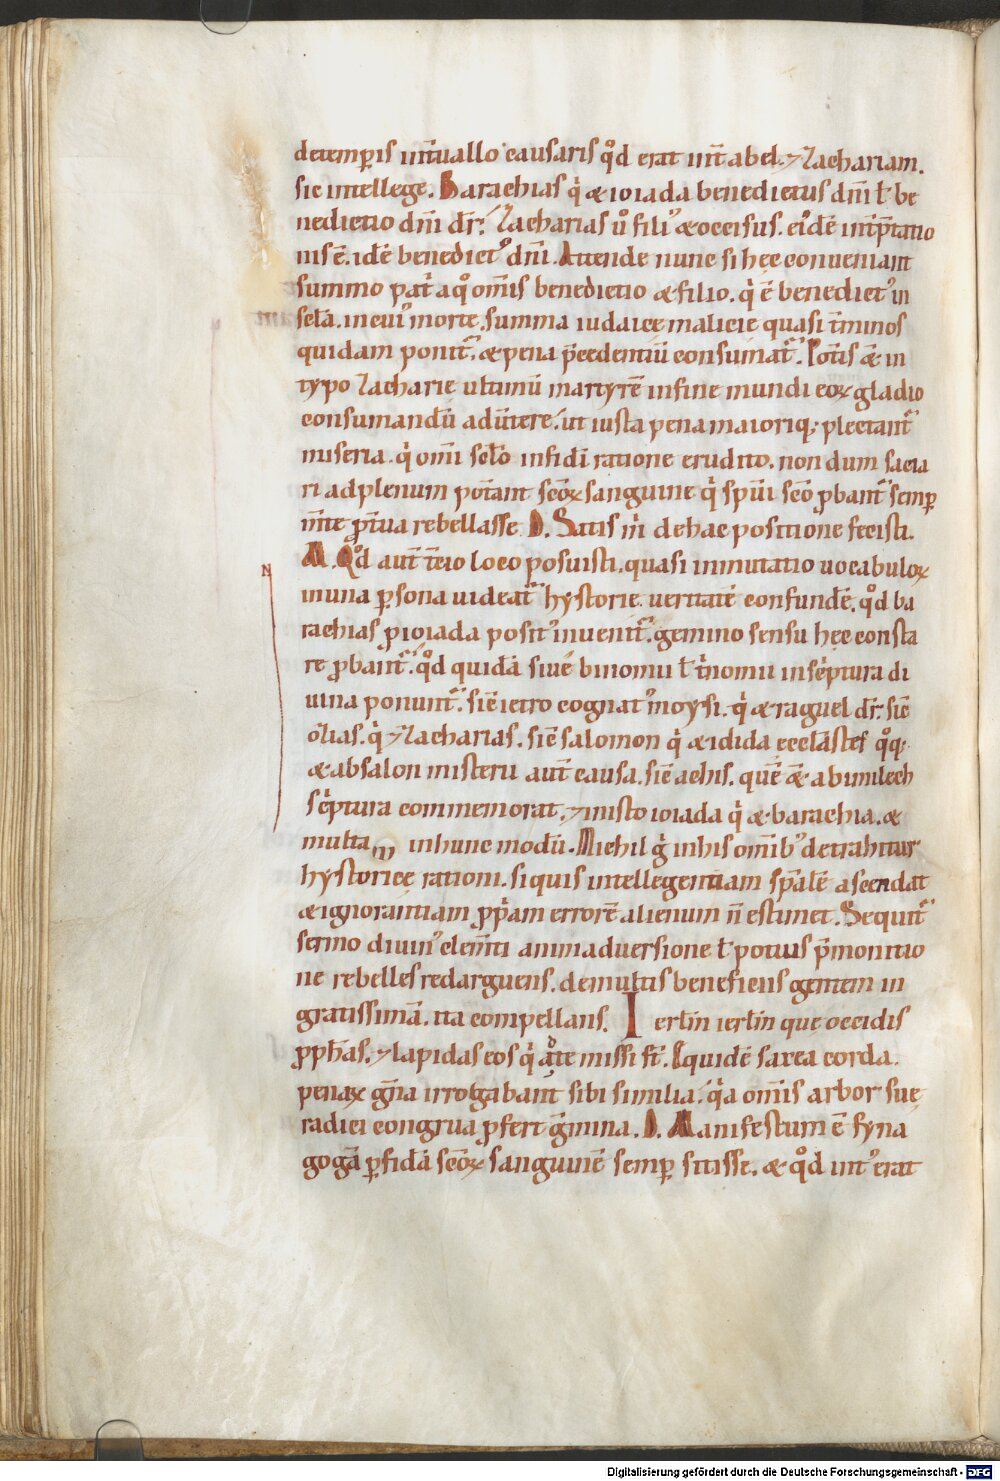 detemp̄is int̄uallo causaris qͦd erat int̄ abel. ⁊ zachariam.
sic intellege. Barachias q̇ & ioiada benedictus dn̄i ł be
nedictio dn̄i dr̄. Zacharias u̇ fili᾽ & occisus. ei᾽dē int̄p̄tatio
nis ē. idē benedict᾽ dn̄i. Attende nunc si hęc conueniant
summo pat̄ aq̊ om̄is benedictio & filio. q̇ ē benedict᾽ in
scła. in cui᾽ morte. summa iudaicę malicie quasi t̄minos
quidam ponit᷑. & pena p̄cedentiū consum̄at᷑. Pot̄is & in
typo Zacharie ultimū martyrē in fine mundi eoꝝ gladio
consumandū adūtere. ut iusta pena maioriq; plectant᷑
miseria. q̇ om̄i scło infidī ratione erudito. non dum sacia
ri adplenum pot̄ant sc̄oꝝ sanguine q̇ spūi sc̄o ꝓbant᷑ semp̄
m̄te ꝓt̄ua rebellasse. D. Satis m̄ de hac positione fecisti.
M. Qͦd aut̄ t̄cio loco posuisti. quasi inmutatio uocabuloꝝ
N
in una ꝑsona uideat᷑ hystorie ueritatē confundē. qͦd ba
rachias ꝓ ioiada posit᾽ inuenit᷑. gemino sensu hęc consta
re ꝓbant᷑. qͦd quidā siue binomii ł t̄nomii in sc̄ptura di
uina ponunt᷑. sic̄ ietro cognat᾽ moysi. q̇ & raguel dr̄. sic̄
ōzias. q̇ ⁊ zacharias. sic̄ salomon q̇ & idida ecclāstes qͦq;
& absalon misterii aut̄ causa. sic̄ achis. quē & abimlech
sc̄ptura commemorat. ⁊ in isto ioiada q̇ & barachia. &
multa in hunc modū. Nichil ḡ in his om̄ib᾽ detrahitur
hystoricę rationi. si quis intellegentiam sp̄alē ascendat
& ignorantiam ꝓp̄am errorē alienum n̄ estimet. Sequit᷑
sermo diuin᾽ clem̄ti animaduersione ł potius p̄monitio
ne rebelles redarguens. de multis beneficiis gentem in
gratissimā. ita compellans. Ierłm ierłm que occidis
ꝓph̄as. ⁊ lapidas eos q̇ a᷑te missi st̄. Siquidē saxea corda.
penaꝝ gn̄a irrogabant sibi similia. q̇a om̄is arbor suę
radici congrua ꝓfert ḡmina. D. Manifestum ē syna
gogā ꝑfidā sc̄oꝝ sanguinē semp̄ sitisse. & qͦd int᾽erat